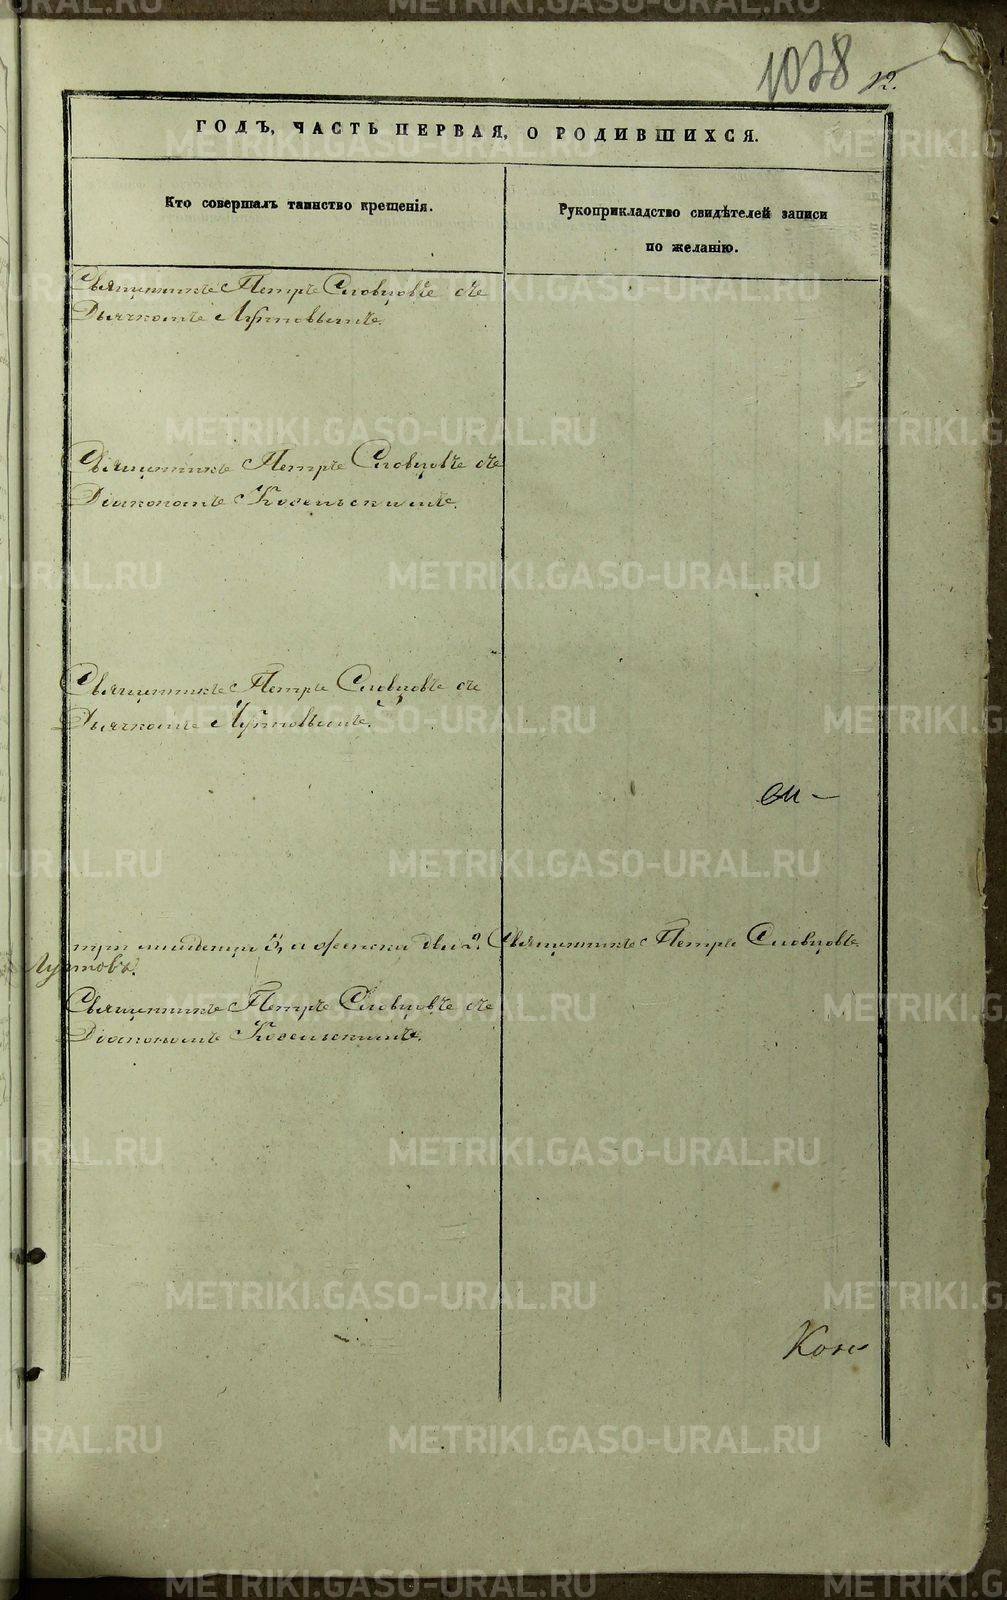 1038 12.
ГОДЪ, ЧАСТЬ ПЕРВАЯ, О РОДИВШИХСЯ.
Кто совершалъ таинство крещенія.
Рукоприкладство свидѣтелей записи
по желанію.
Священникъ Петръ Словцовъ съ
Дьячкомъ Луптовымъ.
Священникъ Петръ Словцовъ съ
Діакономъ Косельскимъ.
Священникъ Петръ Словцовъ съ
Дьячкомъ Луптовымъ.
3, и женска два 2. Священникъ Петръ Словцовъ
Луптовъ.
Священникъ Петръ Словцовъ съ
Діакономъ Косельскимъ.
METRIKI.GASO-URAL.RU